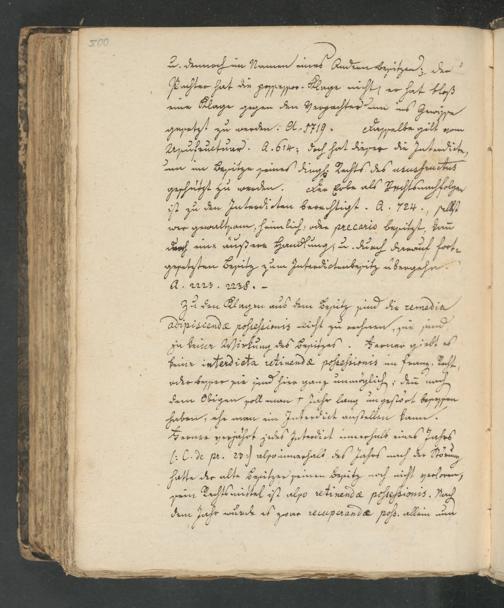 500
u. dennoch im Namen eines Andern besitzen; der
Pächter hat die possessor. Klage nicht, er hat bloß
eine Klage gegen den Verpächter um ins Gewisse
gesetzt zu werden. A. 1719. Dasselbe gilt vom
Usufructuar. A. 614; doch hat dieser die Interdicte,
um im Besitze seines dingl. Rechts des ususfructus
geschützt zu werden. Der Erbe als Rechtsnachfolger
ist zu den Interdicten berechtigt. A. 724., selbst
wer gewaltsam, heimlich, oder precario besitzt, kann
durch eine äußere Handlung, u. durch darauf fort-
gesetzten Besitz zum Interdictenbesitz übergehn.
A. 2223. 2238. –
Zu den Klagen aus dem Besitz sind die remedia
adipiscendæ possessionis nicht zu rechnen, sie sind
ja keine Wirkung des Besitzes. Ferner giebt es
keine interdicta retinendæ possessionis im franz. Recht,
oder besser sie sind hier ganz unmöglich; denn nach
dem Obigen soll man 1 Jahr lang ungestört besessen
haben, ehe man ein Interdict anstellen kann.
Ferner verjährt jedes Interdict innerhalb eines Jahres
(: C. de pr. 23:) also innerhalb des Jahres nach der Störung
hatte der alte Besitzer seinen Besitz noch nicht verloren,
sein Rechtsmittel ist also retinendæ possessionis. Nach
dem Jahr würde es zwar recuperandæ poss. allein um